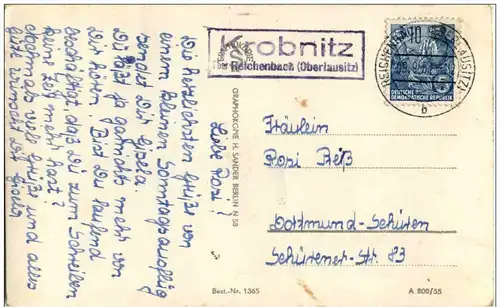 Krobnitz
über Reichenbach (Oberlausitz)
REICHENBACH (OBERLAUSITZ)
b
10
DEUTSCHE
DEMOKRATISCHE REPUBLIK
Liebe Rosi!
Die herzlichsten Grüße von
einem kleinen Sonntagsausflug
sendet Dir Gisela.
Du läßt ja garnichts mehr von
Dir hören. Bist Du laufend
beschäftigt daß Du zum Schreiben
keine Zeit mehr hast?
Nochmals viel Grüße und alles
Gute wünscht Dir
GRAPHOKOPIE H. SANDER BERLIN N 58
Fräulein
Rosi Reiß
Dortmund-Schüren
Schürener-Str. 83
Best.-Nr. 1365
A 200/55